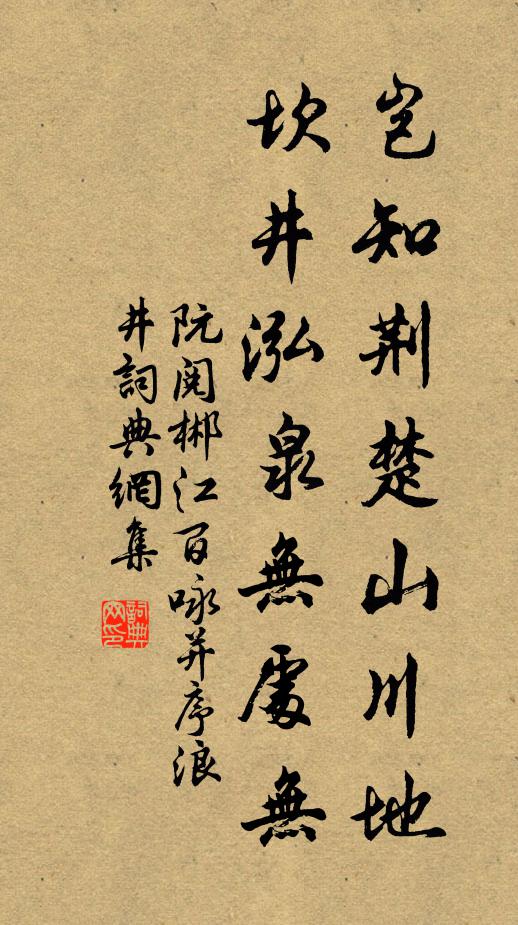 豈知荆楚山川地
坎井泓泉無處無
阮閱郴江百咏并序浪
井詞典網集
詞典网印